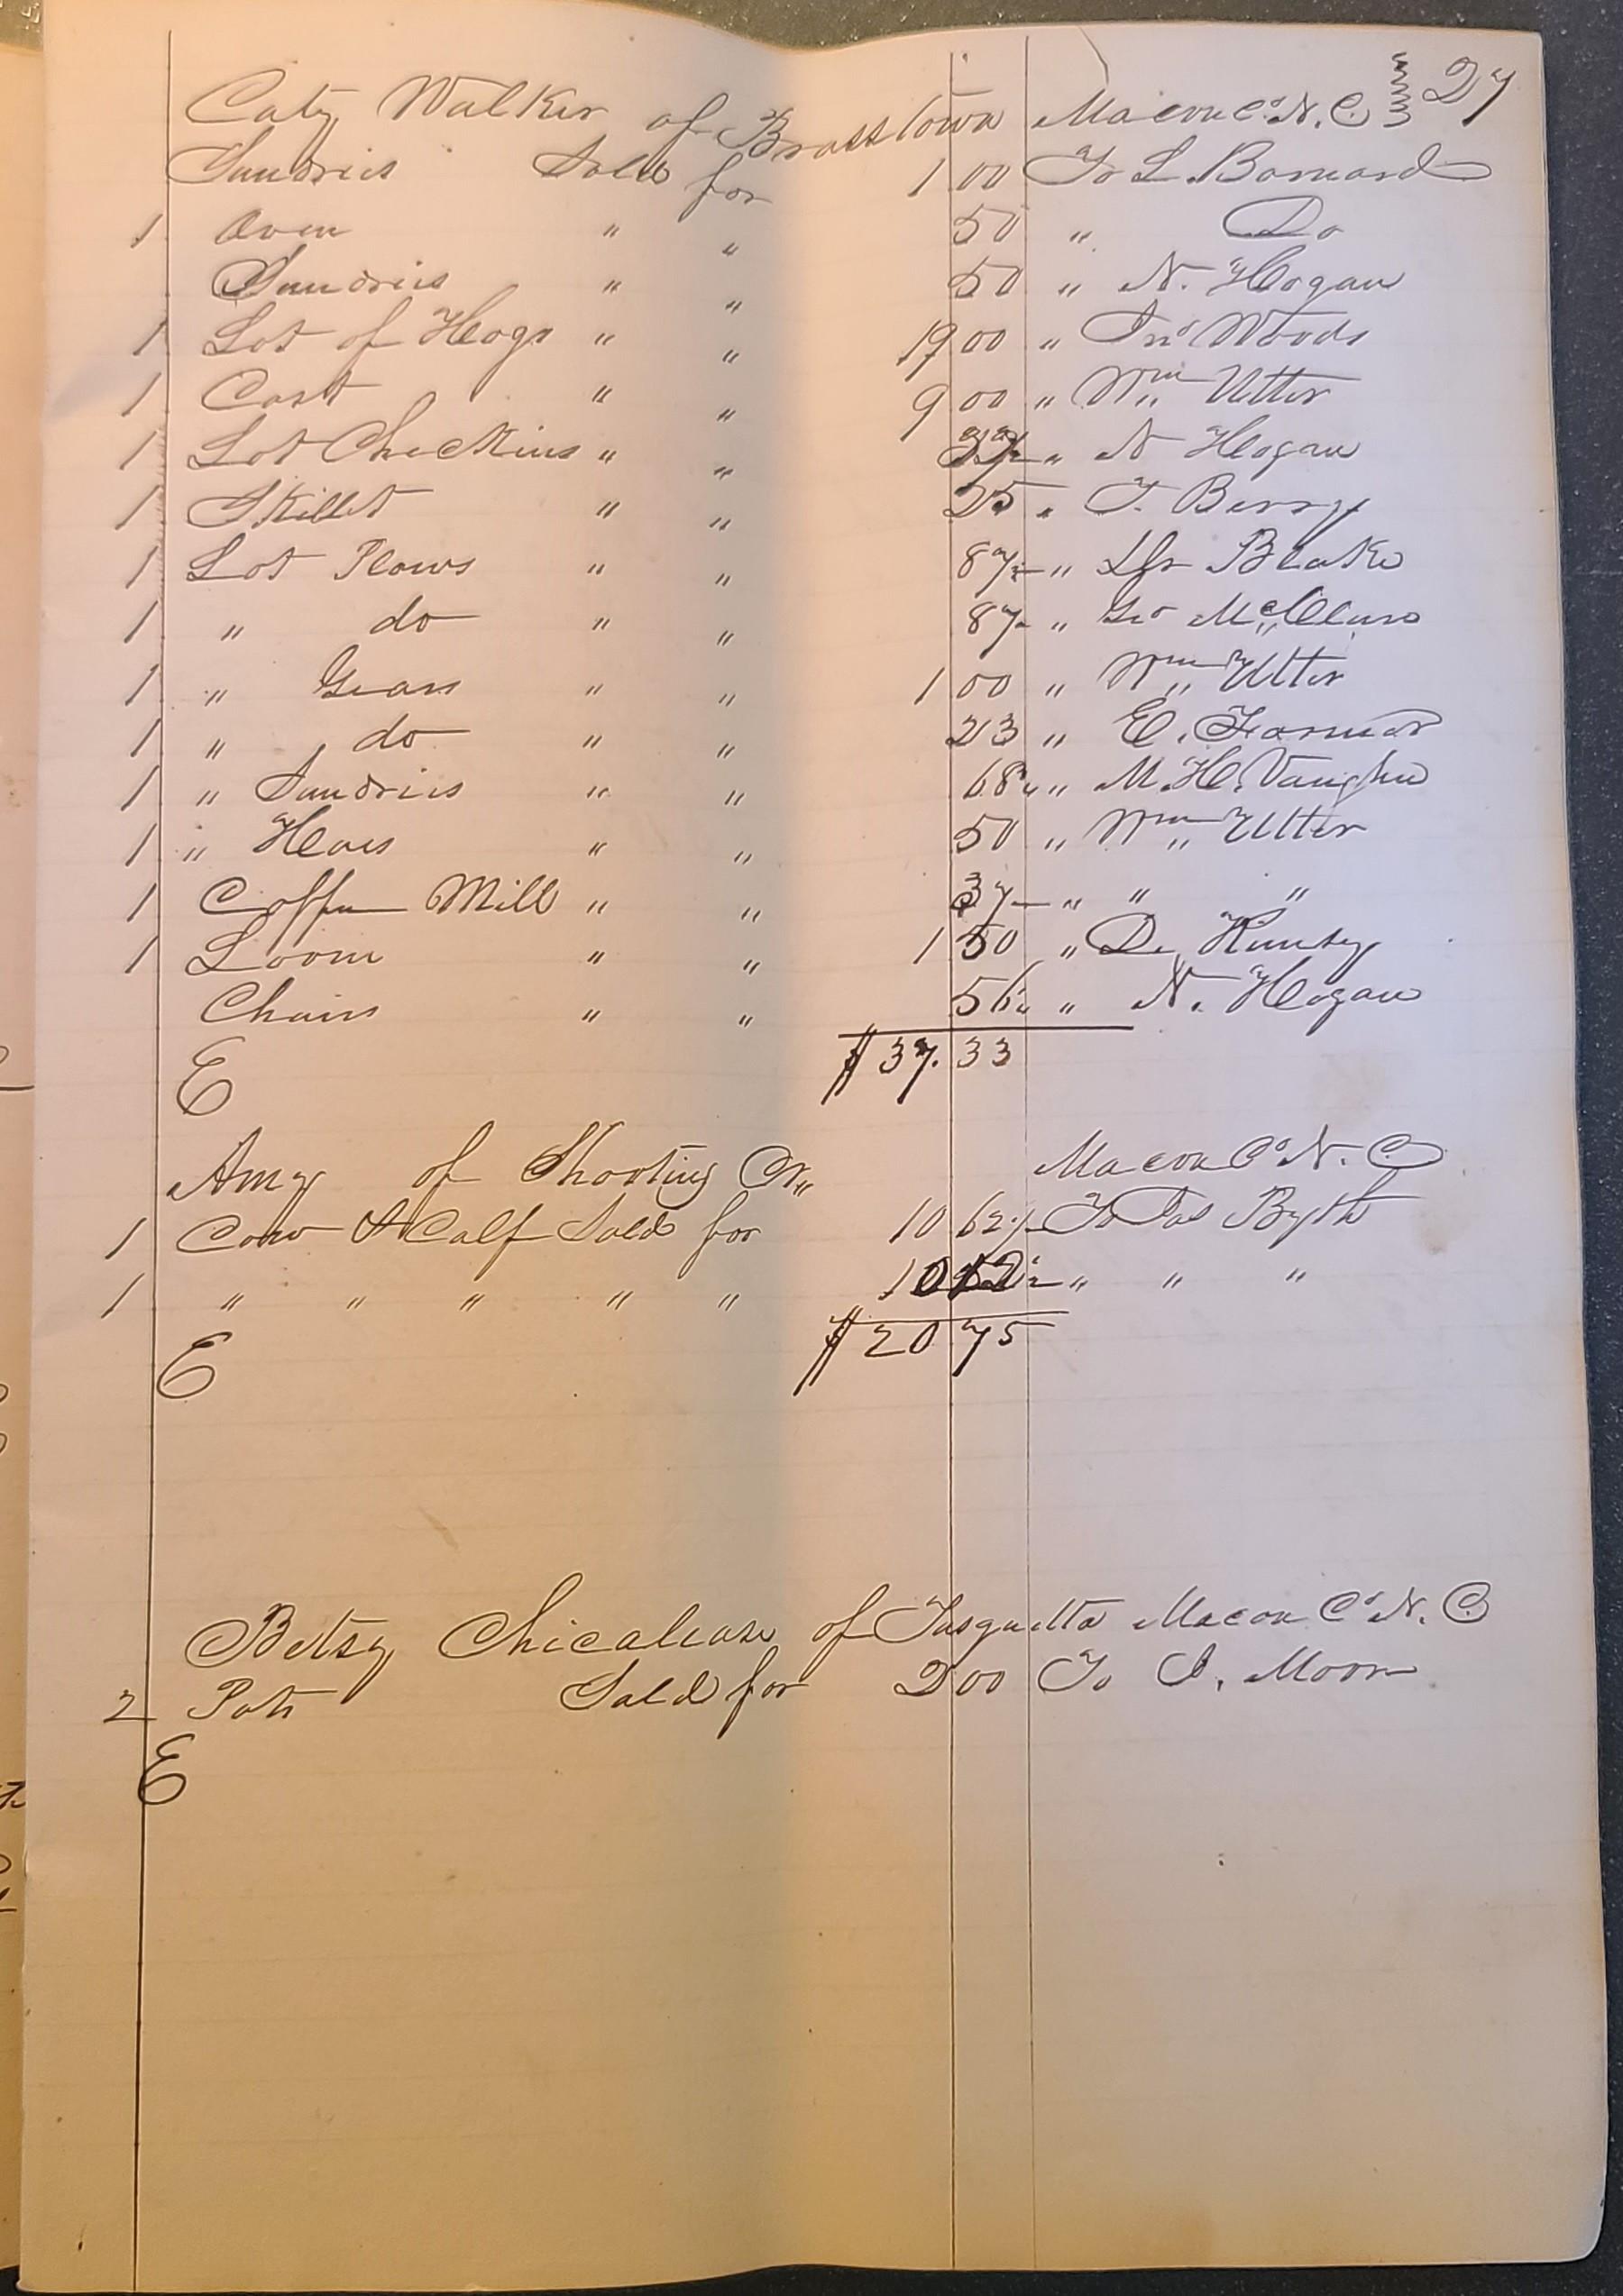 27
Caty Walker of Brasstown Macon Co N. C.
Sundries Sold for 1 00 To L. Barnard
1 Oven " " 50 " Do
Sundries " " 50 " N. Hogan
1 Lot of Hogs " " 19 00 " Jno Woods
1 Cart " " 9 00 " Wm Utter
1 Lot Checkins " " 37½ " N Hogan
1 Skillet " " 25 " T. Berry
1 Lot Plows " " 87½ " Blake
1 " do " " 87½ " Geo McClure
1 " Gears " " 1 00 " Wm Utter
1 " do " " 23 " E. Farmer
1 " Sundries " " 68 " M. H. Vaughn
1 " Hoes " " 50 " Wm Utter
1 Coffee Mill " " 37 " " "
1 Loom " " 1 50 " D. Kimsey
Chairs " " 56 " N. Hogan
$ 37. 33
E
Amy of Shooting Cr Macon Co N. C.
1 Cow & Calf Sold for 10 62½ To Jas Byth
1 " " " " " 10 12½ " " "
$ 20 75
E
Betsy Chicalease of Tusquitta Macon Co N. C.
2 Pots Sold for 2 00 To J. Moore
E